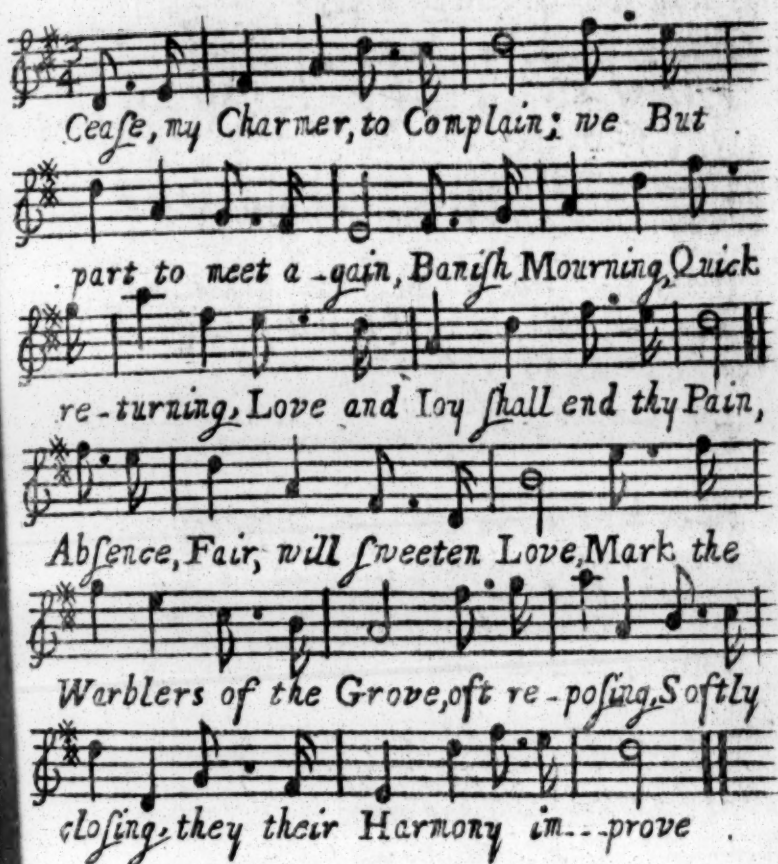 3
4
Ceaſe, my Charmer, to Complain; we But
part to meet a-gain, Baniſh Mourning, Quick
re-turning, Love and Ioy ſhall end thy Pain,
Abſence, Fair, will ſweeten Love, Mark the
Warblers of the Grove, oft re-poſing, Softly
cloſing, they their Harmony im---prove.